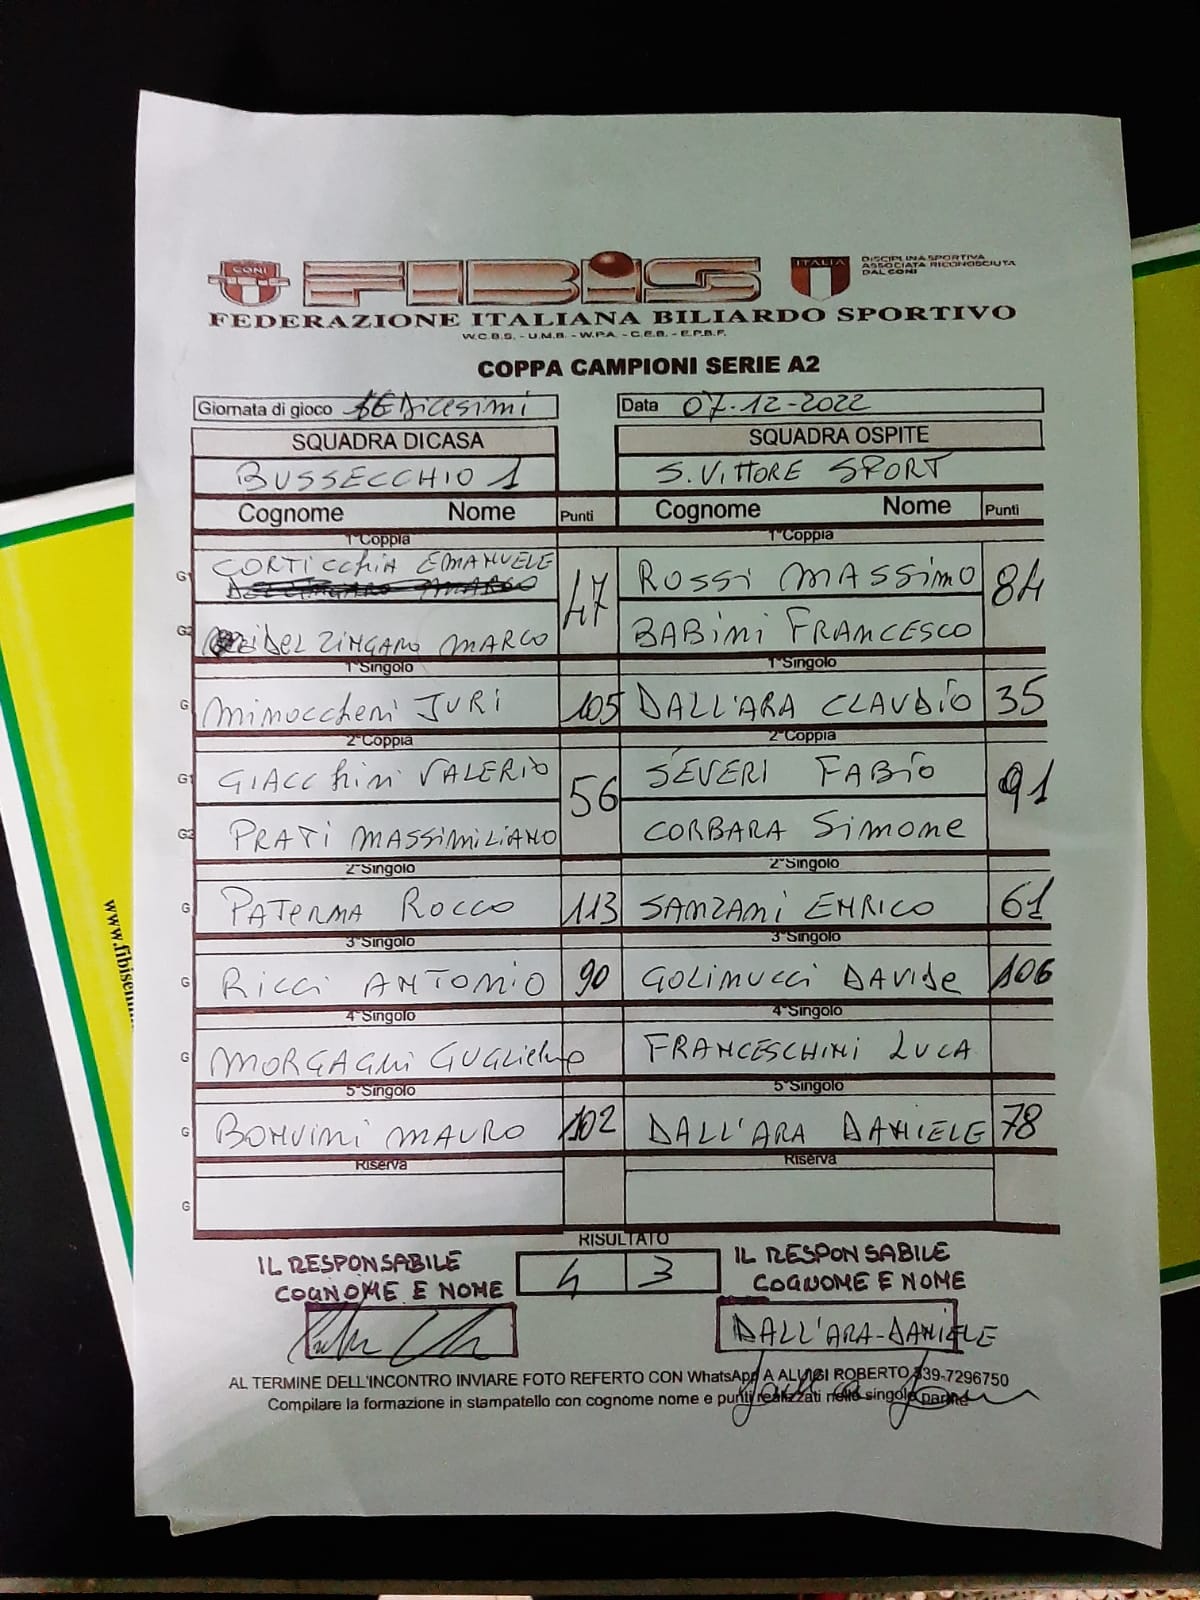 CONI FIBiS ITALIA DISCIPLINA SPORTIVA
ASSOCIATA RICONOSCIUTA
DAL CONI
FEDERAZIONE ITALIANA BILIARDO SPORTIVO
W.C.B.S. - U.M.B. - W.P.A. - C.E.B. - E.P.B.F.
COPPA CAMPIONI SERIE A2
Giornata di gioco SEDicesimi Data 07-12-2022
SQUADRA DI CASA SQUADRA OSPITE
BUSSECCHIO 1 S. VITTORE SPORT
Cognome Nome Punti Cognome Nome Punti
1°Coppia 1°Coppia
G1 CORTICChiA EMANUELE 47 ROSSi MASSimO 84
G2 DEL ZINGARO MARCO BABiNi FRANCESCO
1°Singolo 1°Singolo
G Minoccheri JURi 105 DALL'ARA CLAUDiO 35
2°Coppia 2°Coppia
G1 GIACChiNi VALERIO 56 SEVERI FABiO 91
G2 PRATI MASSiMILIANO CORBARA Simone
2°Singolo 2°Singolo
G PATERNA ROCCO 113 SANZANi ENRICO 61
3°Singolo 3°Singolo
G Ricci ANTONiO 90 GOLINUCCi DAVIDE 106
4°Singolo 4°Singolo
G MORGAGNi GUGLiELMO FRANCESCHINI LUCA
5°Singolo 5°Singolo
G BONVINi MAURO 102 DALL'ARA DANIELE 78
Riserva Riserva
G
RISULTATO
IL RESPONSABILE 4 3 IL RESPONSABILE
COGNOME E NOME COGNOME E NOME
DALL'ARA-DANIELE
AL TERMINE DELL'INCONTRO INVIARE FOTO REFERTO CON WhatsApp A ALUIGI ROBERTO 339-7296750
Compilare la formazione in stampatello con cognome nome e punti realizzati nelle singole partite